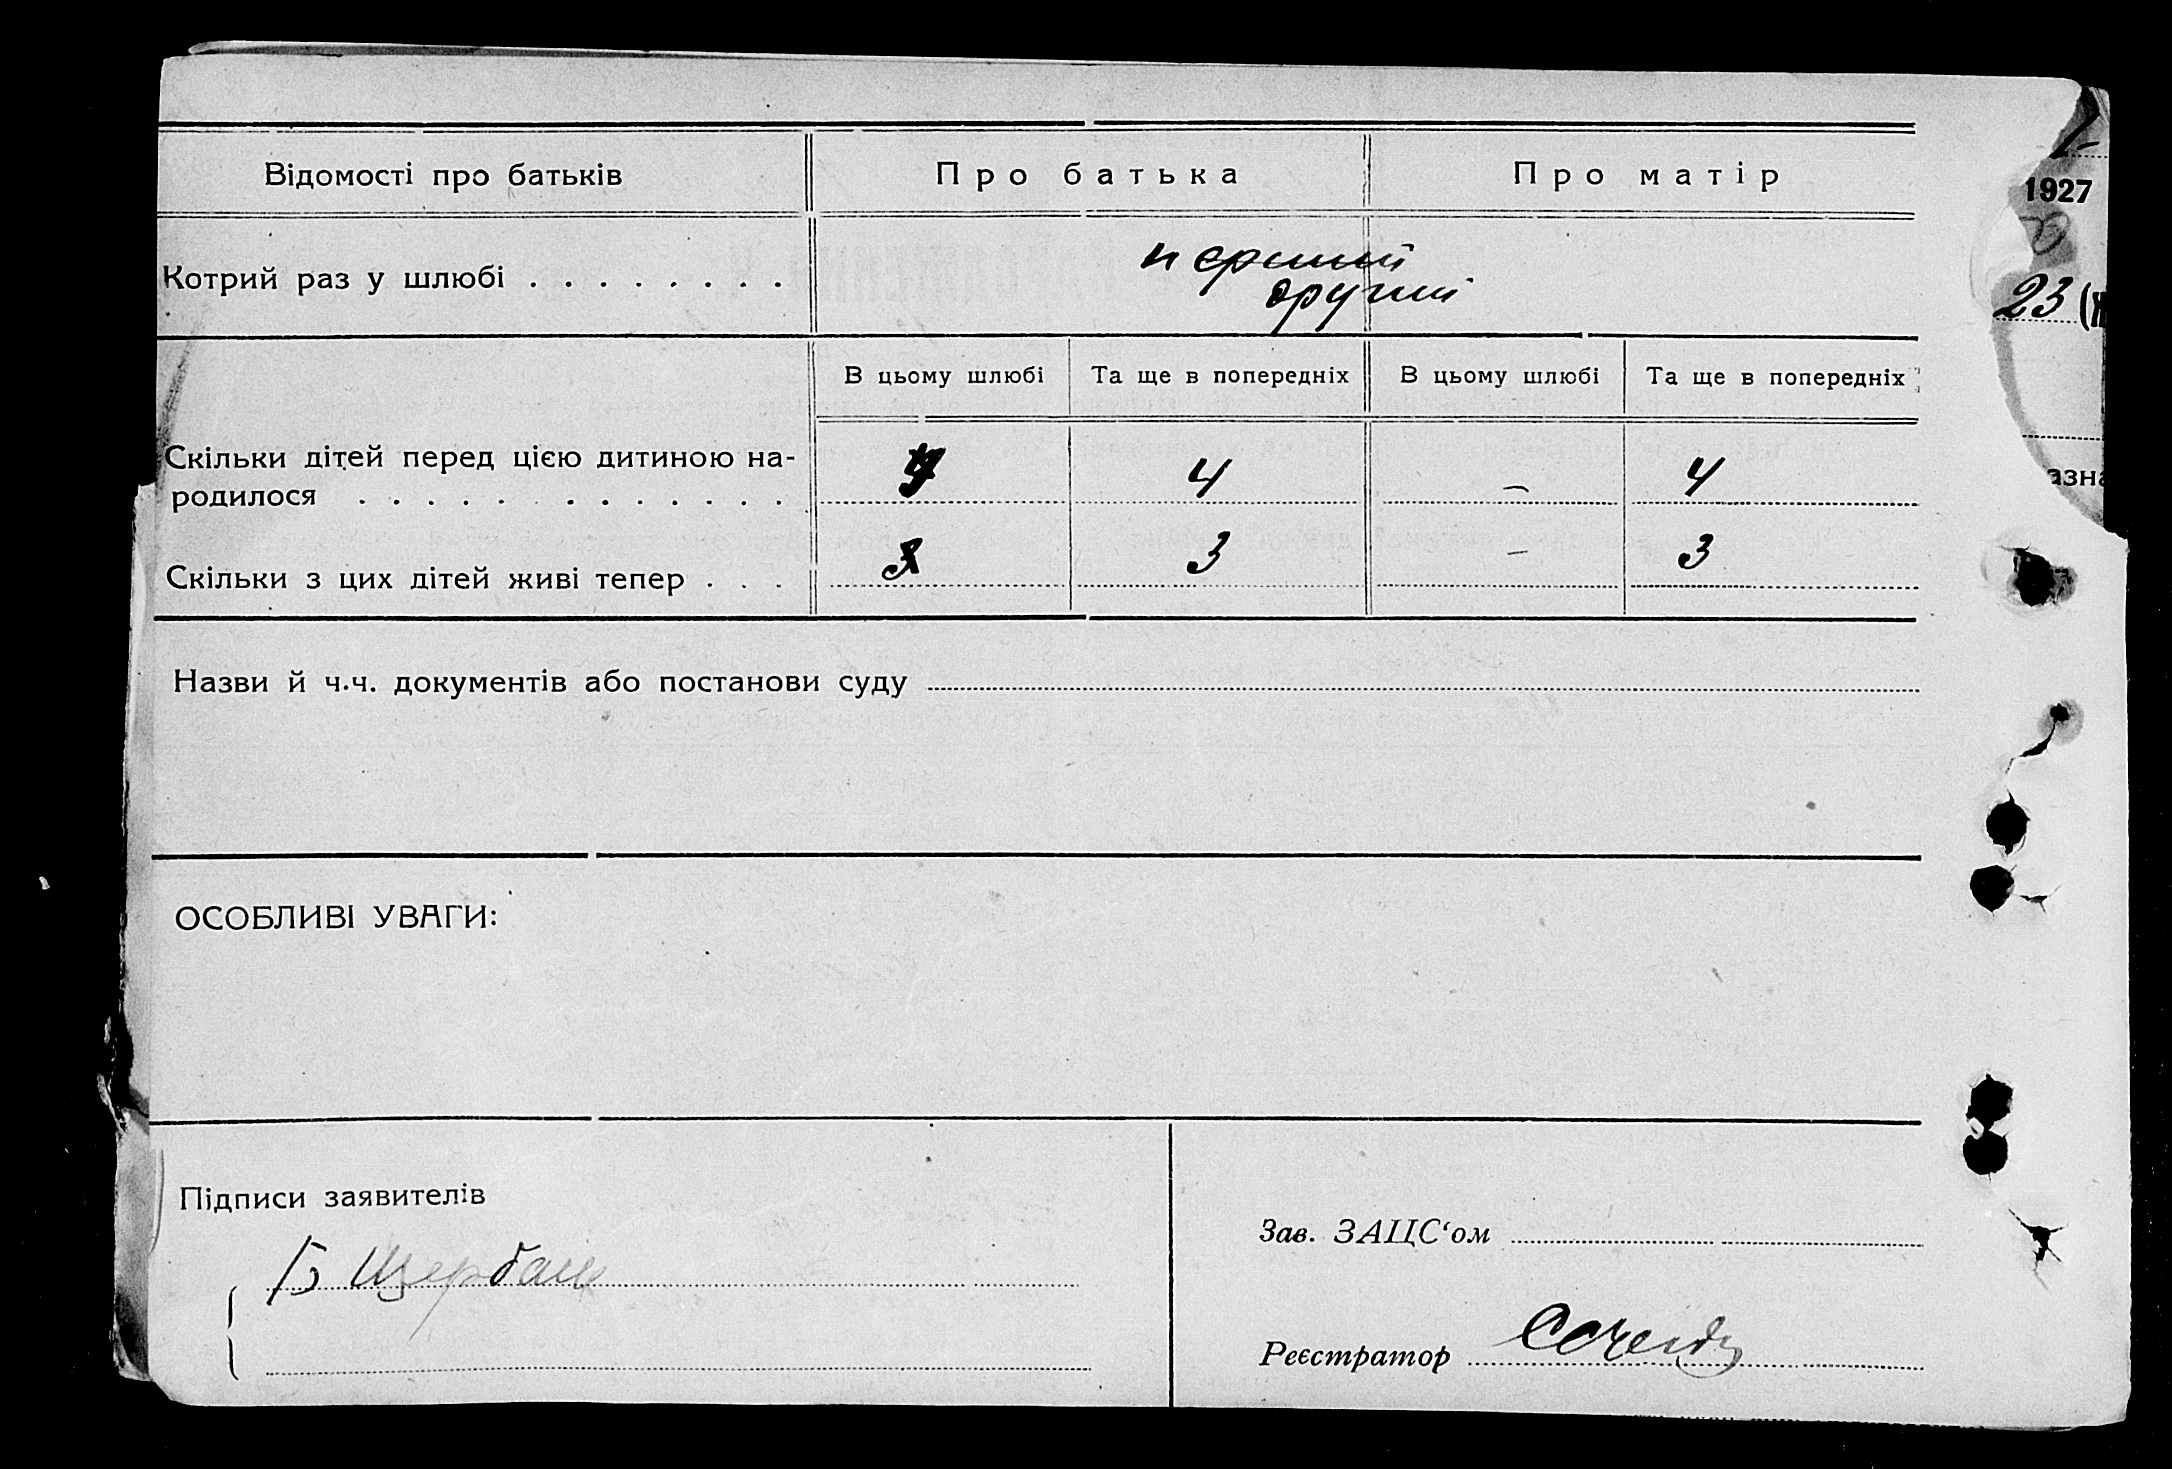 Відомості про батьків
Про батька
Про матір
1927
Котрий раз у шлюбі . . . . . . . .
перший
другий
23 (
В цьому шлюбі
Та ще в попередніх
В цьому шлюбі
Та ще в попередніх
Скільки дітей перед цією дитиною на-
родилося . . . . . . . . . . . . .
4
–
4
азна
Скільки з цих дітей живі тепер . . .
3
–
3
Назви й ч.ч. документів або постанови суду
ОСОБЛИВІ УВАГИ:
Підписи заявителів
Б Щербань
Зав. ЗАЦС‘ом
Реєстратор